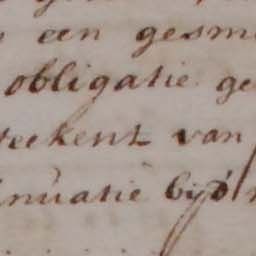 een gesm
obligatie ge
teekent van
inuatie bijd